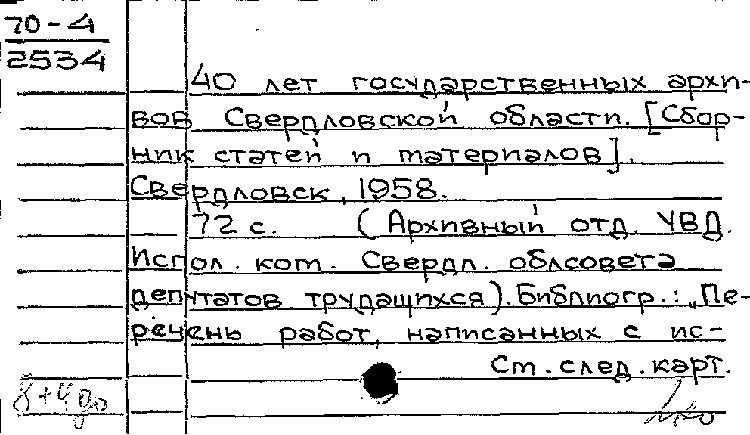 70-4
2534
40 лет государственных архи-
вов Свердловской области. [Сбор-
ник статей и материалов].
Свердловск, 1958.
72 с. (Архивный отд. УВД.
Испол. ком. Свердл. облсовета
депутатов трудящихся). Библиогр.: „Пе-
речень работ, написанных с ис-
См. след. карт.